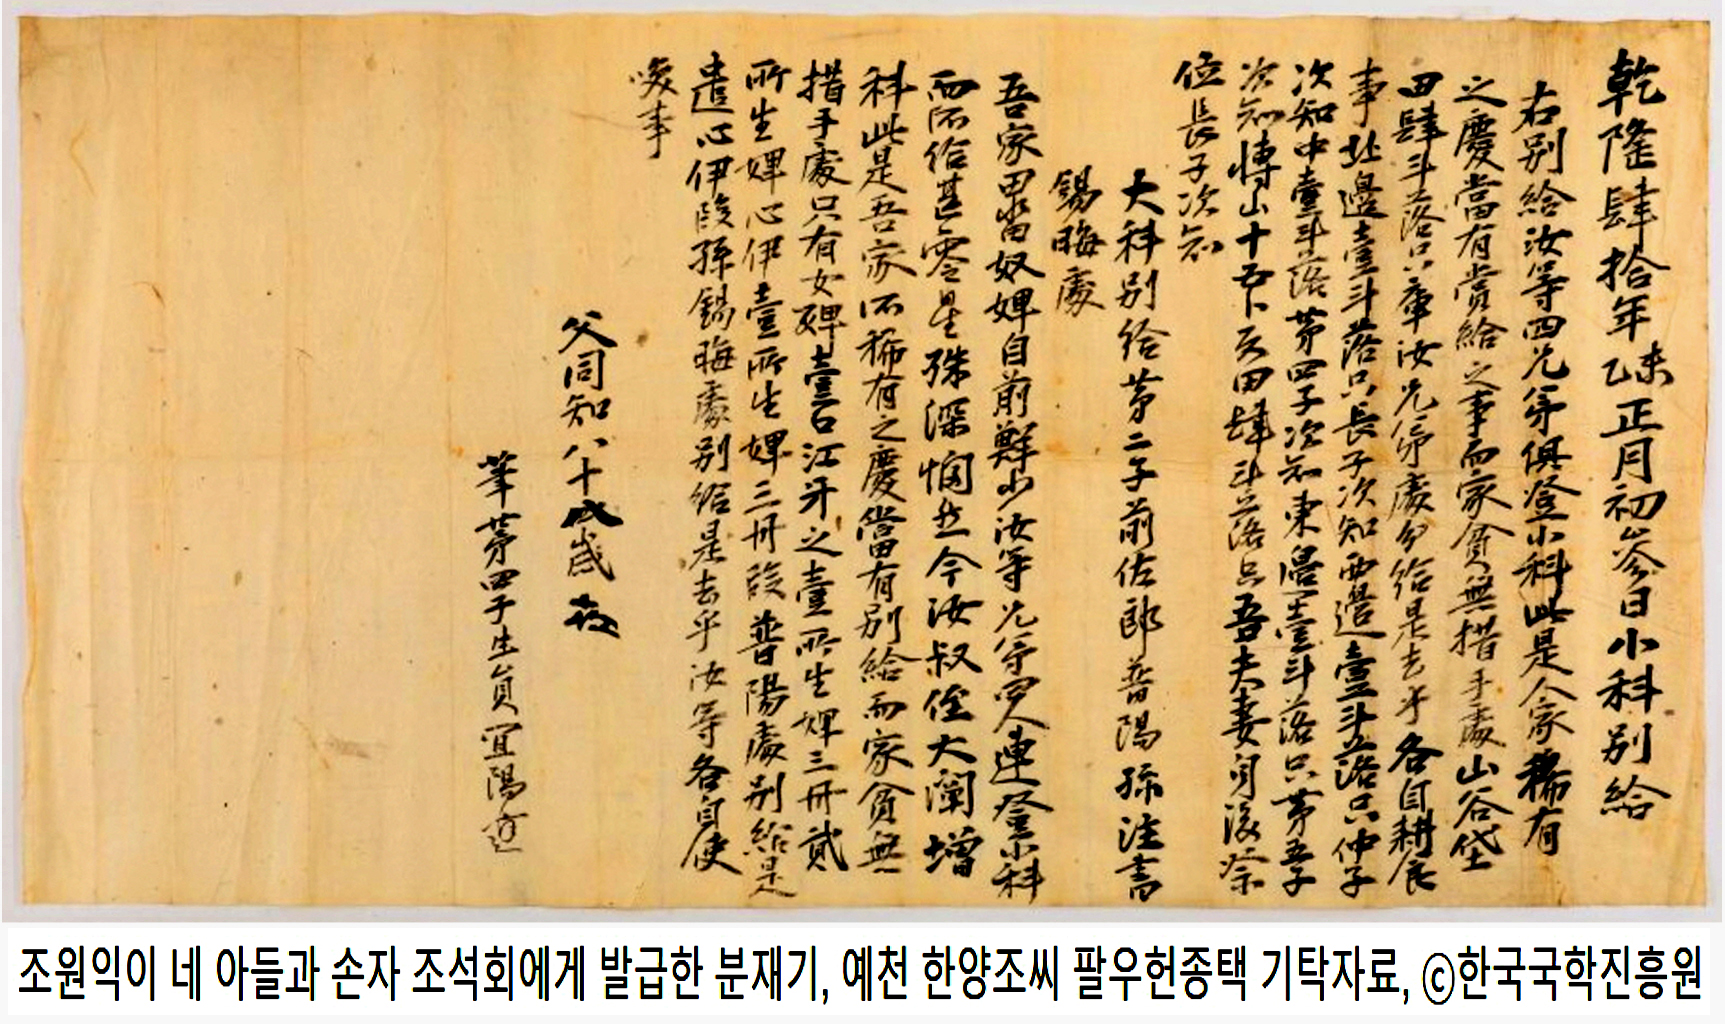 乾隆肆拾年乙未正月初參日小科別給
右別給汝等四兄弟俱登小科此是人家稀有
之慶當有賞給之事而家貧無措手處山谷垈
田肆斗落只庫汝兄弟處分給是去乎各自耕食
事北邊壹斗落只長子次知西邊壹斗落只仲子
次知中壹斗落第四子次知東邊壹斗落只第五子
次知博山十五卜 田肆斗落只吾夫妻身後祭
位長子次知
大科別給第二子前佐郎普陽孫注書
錫晦處
吾家田畓奴婢自前鮮少汝等兄弟四人連登小科
而所給甚零星殊深憫然今汝叔侄大闡增
科此是吾家所稀有之慶當有別給而家貧無
措手處只有女婢壹口江牙之壹所生婢三冊貳
所生婢心伊壹所生婢三冊段普陽處別給是
遣心伊段孫錫晦處別給是去乎汝等各自使
喚事
父同知八十 歲
筆第四子生員宜陽
조원익이 네 아들과 손자 조석회에게 발급한 분재기, 예천 한양조씨 팔우헌종택 기탁자료, ⓒ한국국학진흥원